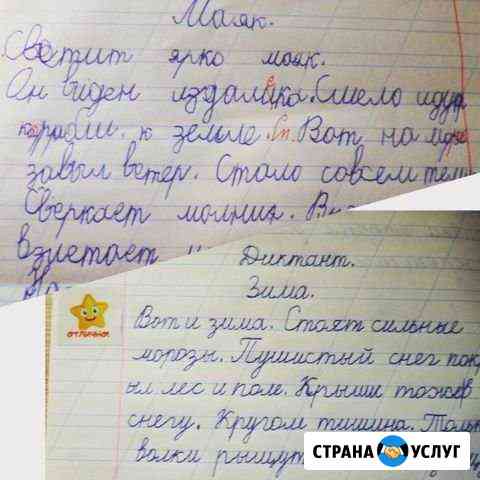 Маяк.
Светит ярко маяк.
Он виден издалека. Смело идут
корабли. к земле. Вот на море
завыл ветер. Стало совсем
Сверкает молния.
Взлетает
Диктант.
Зима.
отлично
Вот и зима. Стоят сильные
морозы. Пушистый снег пок
ыл лес и поле. Крыши тоже в
снегу. Кругом тишина.
волки рыщут
СТРАНА УСЛУГ